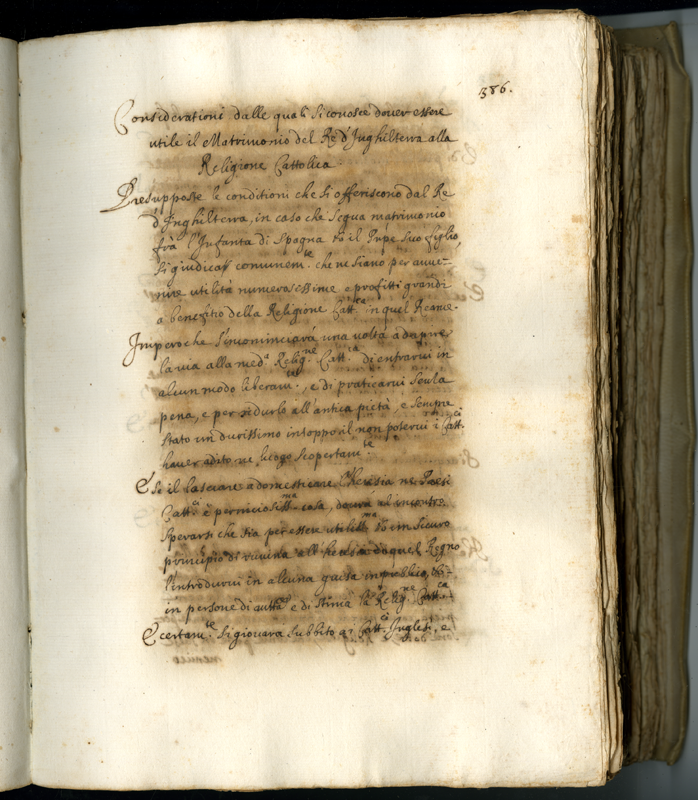 386.
Considerationi dalle quali si conosce dover essere
utile il Matrimonio del Re d'Inghilterra alla
Religione Cattolica.
Presupposte le conditioni che si offeriscono dal Re
d'Inghilterra, in caso che segua matrimonio
frà l'Infanta di Spagna et il Pnpe suo figlio,
si giudica comunem.te che ne siano per avve-
nire utilità numerosissime e profitti grandi
a benefitio della Religione Catt.ca in quel Reame.
Imperoche s'incominciarà una volta ad aprire
la via alla med.a Relig.ne Catt.ca di entrarvi in
alcun modo liberam.te, e di praticarvi senza
pena, e per ridurlo all'antica pietà, e sempre
stato un durissimo intoppo il non potervi i Catt.ci
haver adito ne luogo scopertam.te
E se il lasciare adomesticare l'heresia ne Paesi
Catt.ci è perniciosiss.ma cosa, dovrà al incontro
sperarsi che sia per essere utiliss.ma et un sicuro
principio di ruvina all'heresia da quel Regno
l'introdurvi in alcuna guisa in publico, et
in persone di autt.tà e di stima la Relig.ne Catt.ca
E certam.te si giovarà subbito a i Catt.ci Inglesi, e